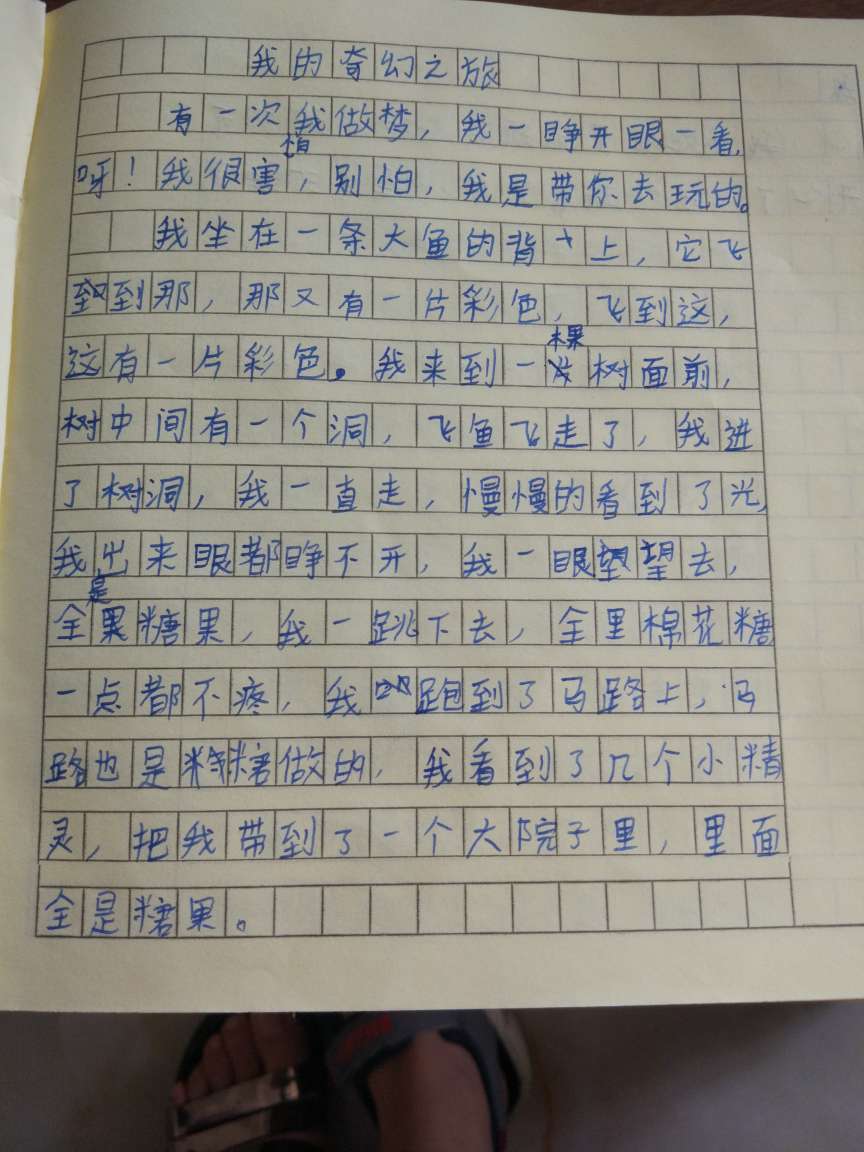 我的奇幻之旅
有一次我做梦，我一睁开眼一看，
呀！我很害怕，别怕，我是带你去玩的。
我坐在一条大鱼的背上，它飞
到那，那又有一片彩色，飞到这，
这有一片彩色。我来到一棵树面前，
树中间有一个洞，飞鱼飞走了，我进
了树洞，我一直走，慢慢的看到了光，
我出来眼都睁不开，我一眼望去，
全是糖果，我一跳下去，全里棉花糖
一点都不疼，我跑到了马路上，马
路也是糖做的，我看到了几个小精
灵，把我带到了一个大院子里，里面
全是糖果。